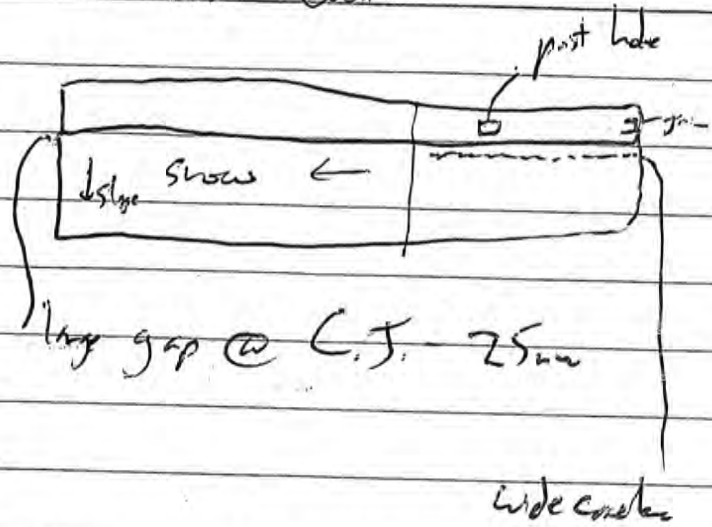 post hole
snow ←
↓ slope
large gap @ C.J. - 25mm
wide crack